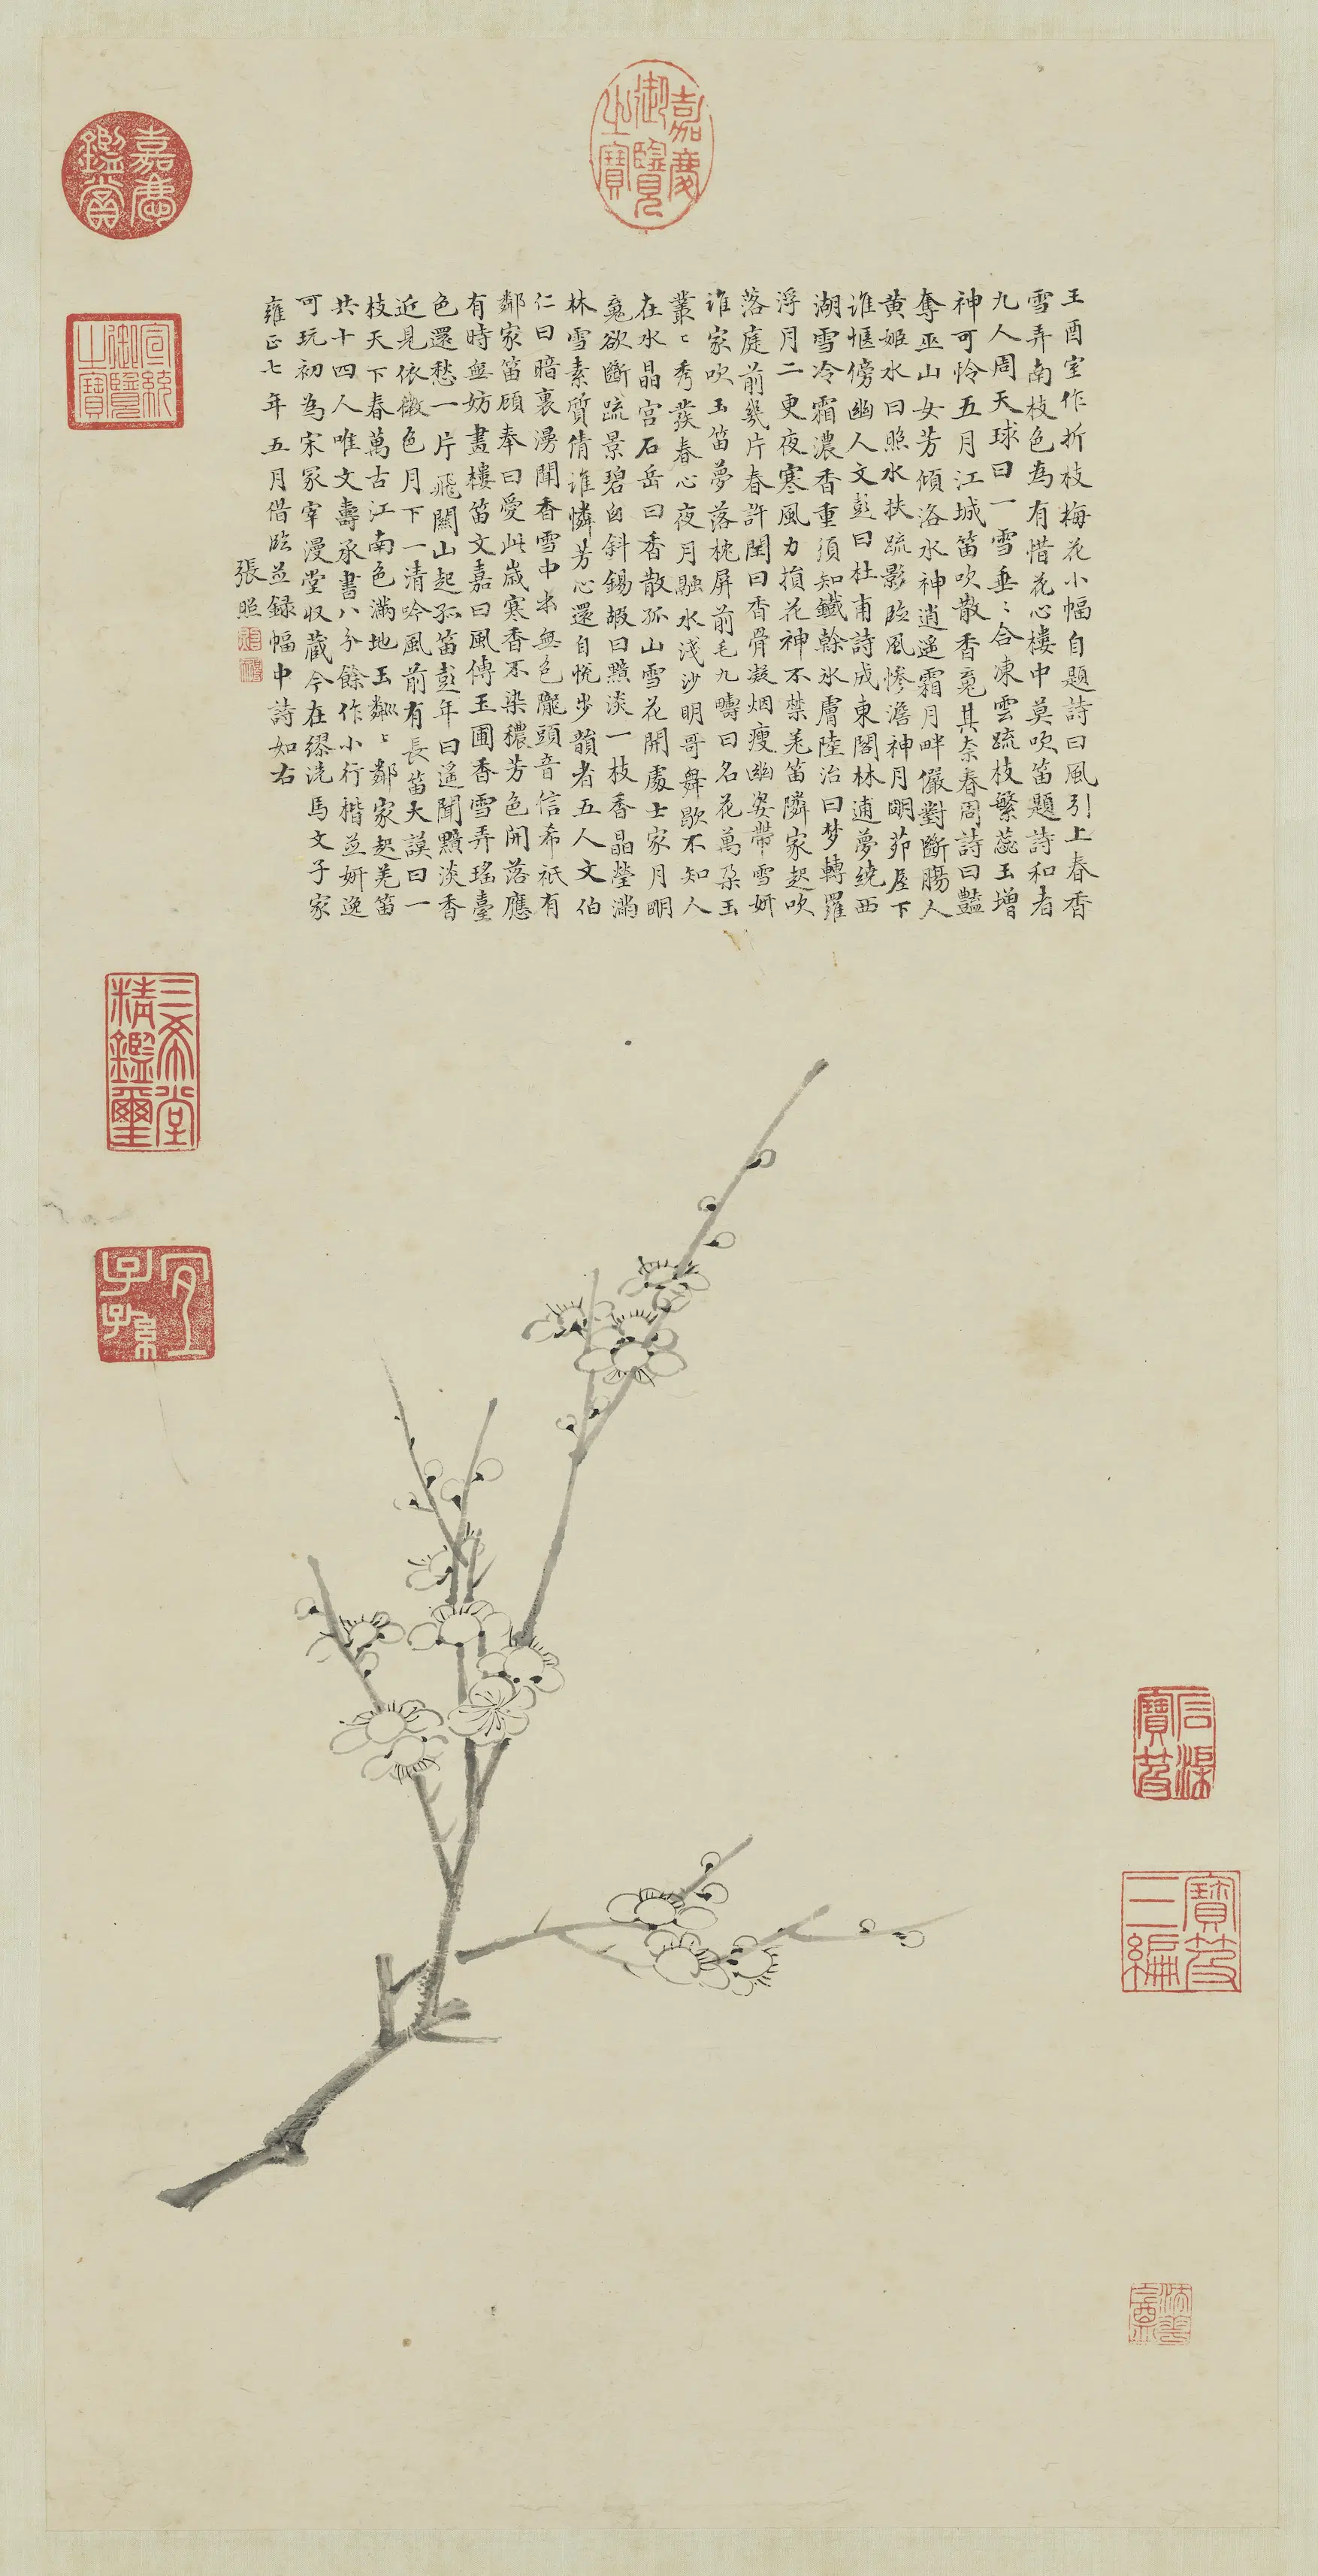 王酉室作折枝梅花小幅自題詩曰風引上春香
雪弄南枝色為有惜花心樓中莫吹笛題詩和者
九人周天球曰一雪垂〻合凍雲疏枝繁蕊玉增
神可怜五月江城笛吹散香䰟其奈春周詩曰豔
奪巫山女芳傾洛水神逍遥霜月畔儼對斷膓人
黄姬水曰照水扶疏影臨風慘澹神月明茆屋下
誰愜傍幽人文彭曰杜甫詩成東閣林逋夢繞西
湖雪冷霜濃香重須知鐵榦氷膚陸治曰梦轉羅
浮月二更夜寒風力損花神不禁羌笛隣家起吹
落庭前幾片春許閏曰香骨凝烟瘦幽姿帶雪妍
誰家吹玉笛夢落枕屏前毛九疇曰名花萬朶玉
叢〻秀發春心夜月融水淺沙明哥舞歇不知人
在水晶宮石岳曰香散孤山雪花開處士家月明
䰟欲斷疏景碧囪斜錫嘏曰黯淡一枝香晶瑩滿
林雪素質倩誰憐芳心還自悅步韻者五人文伯
仁曰暗裏聞香雪中無色隴頭音信希祇有
鄰家笛顾奉曰愛此歲寒香不染穠芳色開落應
有時無妨畫樓笛文嘉曰風傳玉圃香雪弄瑤臺
色還愁一片飛關山起孤笛彭年曰遙聞黯淡香
近見依微色月下一清吟風前有長笛大謨曰一
枝天下春萬古江南色滿地玉鄰〻鄰家起羌笛
共十四人唯文壽承書八分餘作小行楷並妍逸
可玩初為宋冢宰漫堂收藏今在繆洗馬文子家
雍正七年五月借臨並録幅中詩如右
張照
嘉慶御覽之寶
嘉慶鑑賞
宣統御覽之寶
三希堂精鑑璽
宜子孫
石渠寶笈
寶笈三編